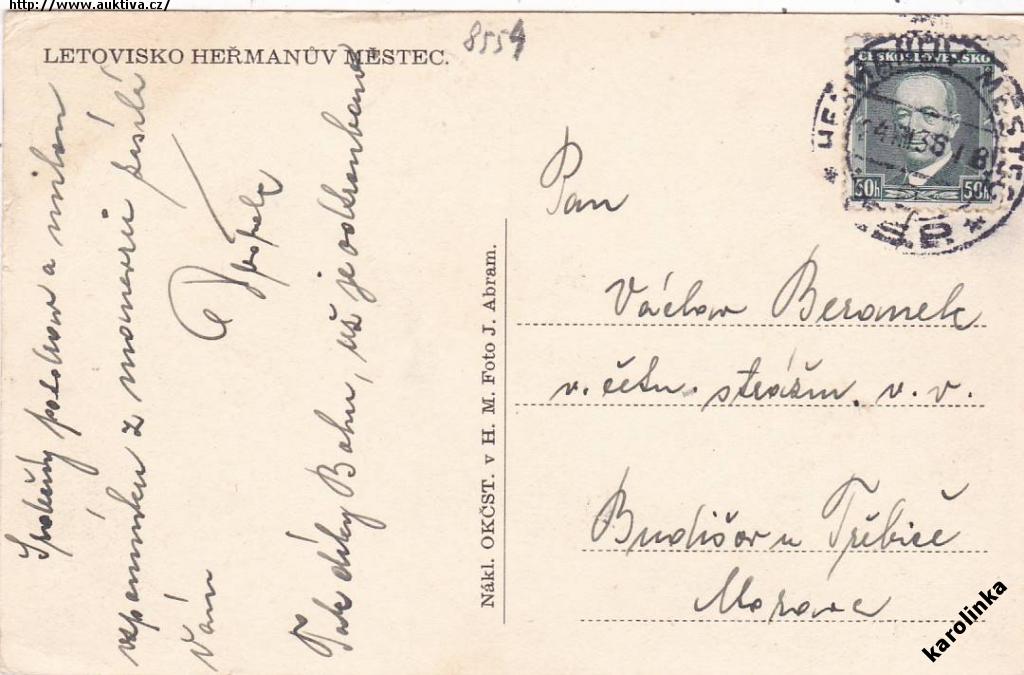 http://www.auktiva.cz/
LETOVISKO HEŘMANŮV MĚSTEC.
8554
Srdečný pozdrav a milou
vzpomínku z manevrů posílá
Vám
Tak díky Bohu, už je odtroubeno
Nákl. OKČST. v H. M. Foto J. Abram.
ČESKOSLOVENSKO
50h 50h
MĚSTEC
Pan
Václav Beranek
v. četn. strážm. v. v.
Budišov u Třebíče
Morava
karolinka